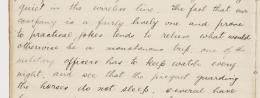 quiet in the wireless line. The fact that our
company is a fairly lively one and prone
to practical jokes tends to relieve what would
otherwise be a monotonous trip, one of the
military officers has to keep watch every
night, and see that the picquet guarding
the horses do not sleep, several have